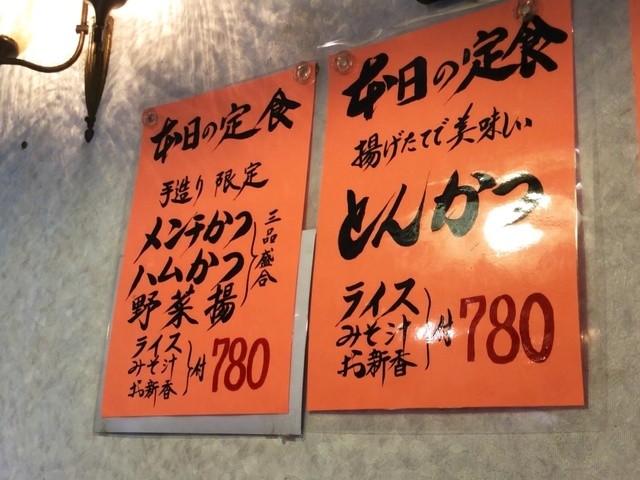 本日の定食
手造り 限定
メンチかつ
ハムかつ
野菜揚
三品盛合
ライス
みそ汁
お新香
付
780
本日の定食
揚げたてで美味しい
とんかつ
ライス
みそ汁
お新香
付
780